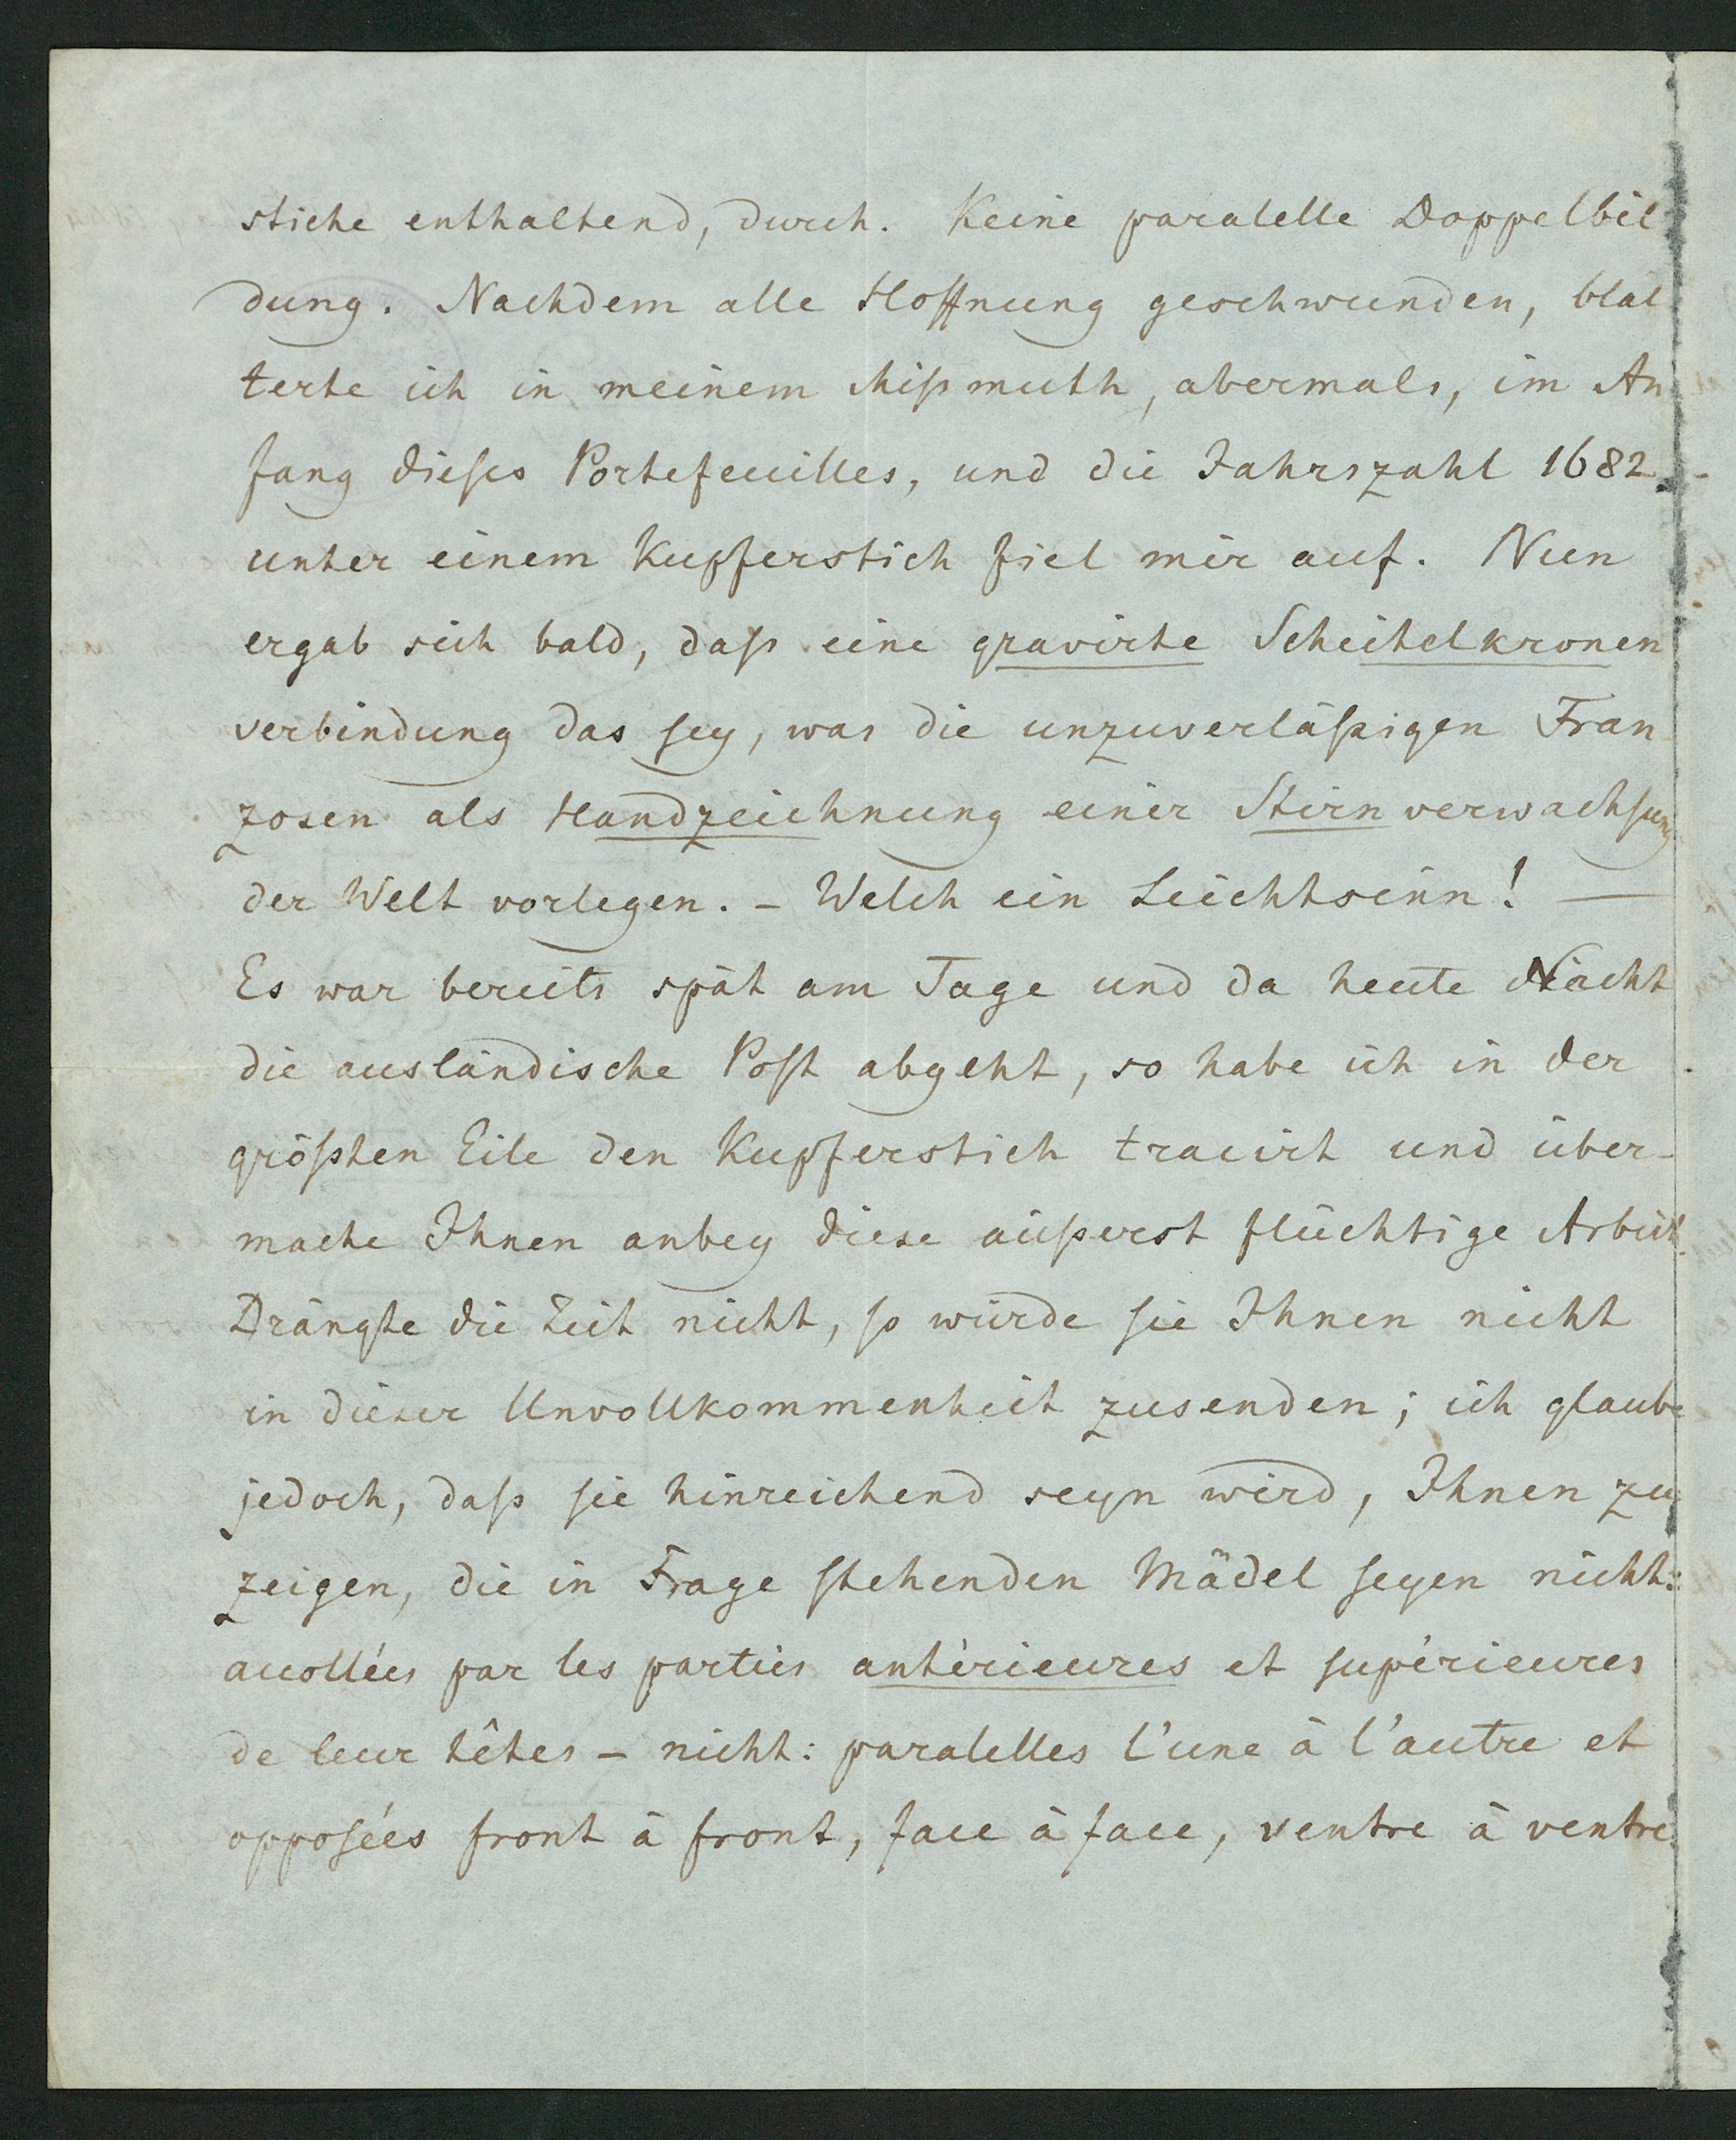 stiche enthaltend, durch. Keine paralelle Doppelbil
dung. Nachdem alle Hoffnung geschwunden, blät
terte ich in meinem Mißmuth, abermals, im An
fang dieses Portefeuilles, und die Jahrszahl 1682.
unter einem Kupferstich fiel mir auf. Nun
ergab sich bald, daß eine gravirte Scheitelkronen
verbindung das sey, was die unzuverläßigen Fran
zosen als Handzeichnung einer Stirnverwachsung
der Welt vorlegen. – Welch ein Leichtsinn! —
Es war bereits spät am Tage und da heute Nacht
die ausländische Post abgeht, so habe ich in der
größten Eile den Kupferstich tracirt und über-
mache Ihnen anbey diese äußerst flüchtige Arbeit.
Drängte die Zeit nicht, so würde sie Ihnen nicht
in dieser Unvollkommenheit zusenden; ich glaube
jedoch, daß sie hinreichend seyn wird, Ihnen zu
zeigen, die in Frage stehenden Mädel seyen nicht:
accollées par les parties antérieures et supérieures
de leur têtes – nicht: paralelles l'une à l'autre et
opposées front à front, face à face, ventre à ventre